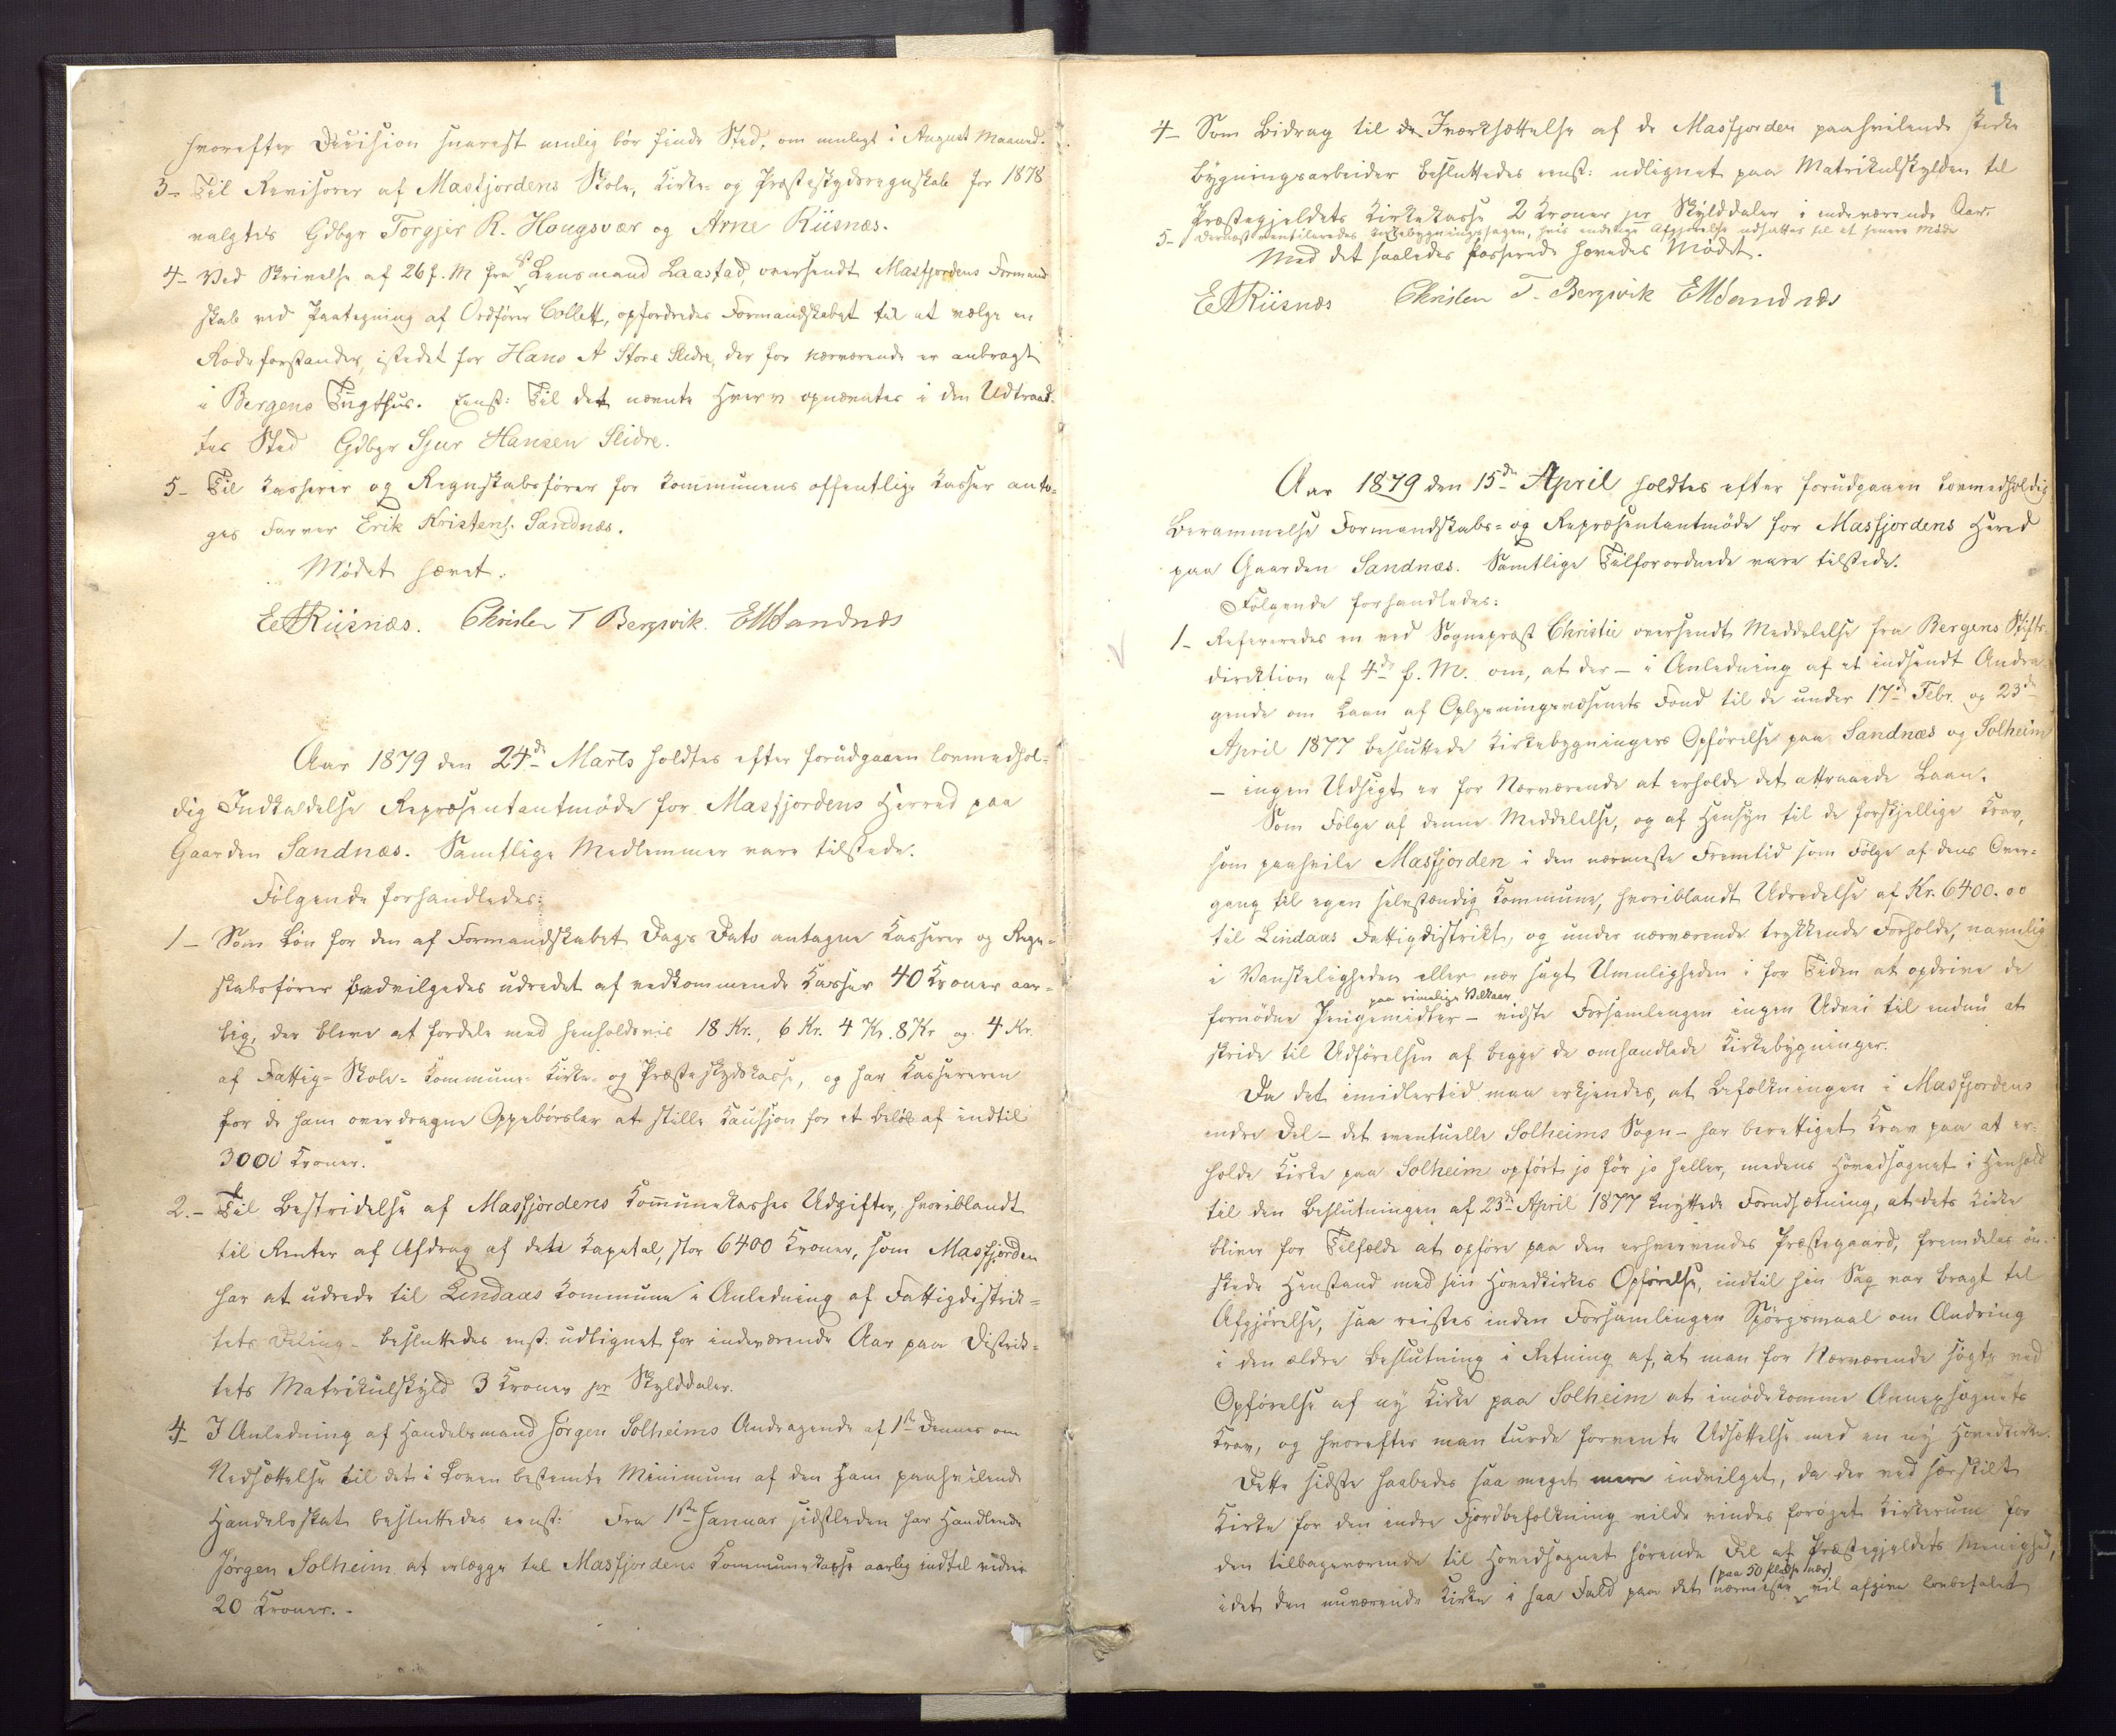 hvorefter Decision snarest mulig bør finde Sted, om muligt i August Maaned.
3- Til Revisorer af Masfjordens Skole, Kirke- og Præsteskydsregnskab for 1878
valgtes Gdbgr Torgjer R. Hougsvær og Arne Riisnæs.
4- Ved Skrivelse af 26 f. M fra Lensmand Laastad, oversendt Masfjordens Formand
skab ved Paategning af Ordfører Collett, opfordredes Formandskabet til at vælge en
Rodeforstander, istedet for Hans A Store Slidre, der for nærværende er anbragt
i Bergens Tugthus. Eenst: Til det nævnte Hverv opnævntes i den Udtraad-
tes Sted Gdbgr Sjur Hansen Slidre.
5- Til Kasserer og Regnskabsfører for Kommunens offentlige Kasser anto-
ges Farver Erik Kristens. Sandnæs.
Mødet hævet.
E A Riisnæs. Christen T Bergsvik. E K Sandnæs
Aar 1879 den 24de Marts holdtes efter forudgaaen lovmedhol-
dig Indkaldelse Repræsentantmøde for Masfjordens Herred paa
Gaarden Sandnæs. Samtlige Medlemmer vare tilstede.
Følgende forhandledes:
1- Som Løn for den af Formandskabet Dags Dato antagne Kasserer og Regn-
skabsfører bedvilgedes udredet af vedkommende Kasser 40 Kroner aar-
lig, der blive at fordele med henholdsvis 18 Kr., 6 Kr. 4 Kr. 8 Kr og 4 Kr.
af Fattig- Skole- Kommune- Kirke- og Præsteskydskasse, og har Kassereren
for de ham overdragne Oppebørsler at stille Kausjon for et Beløb af indtil
3000 Kroner.
2.- Til Bestridelse af Masfjordens Kommunekasses Udgifter, hvoriblandt
til Renter af Afdrag af dets Kapital, stor 6400 Kroner, som Masfjorden
har at udrede til Lindaas Kommune i Anledning af Fattigdistrik-
tets Deling - besluttedes enst: udlignet for indeværende Aar paa Distrik-
tets Matrikulskyld 3 Kroner pr Skylddaler.
4- I Anledning af Handelsmand Jørgen Solheims Andragende af 1ste Dennes om
Nedsættelse til det i Loven bestemte Minimum af den ham paahvilende
Handelsskat besluttedes eenst: Fra 1ste Januar sidstleden har Handlende
Jørgen Solheim at erlægge til Masfjordens Kommunekasse aarlig indtil videre
20 Kroner.-
1
4- Som Bidrag til Iværksættelse af de Masfjorden paahvilende Kirke
bygningsarbeider besluttedes eenst: udlignet paa Matrikulskylden til
Præstegjeldets Kirkekasse 2 Kroner pr Skylddaler i indeværende Aar.
5- Dernæst ventileredes Kirkebygningssagen, hvis endelige Afgjørelse udsattes til et senere Møde
Med det saaledes Passerede hævedes Mødet.
E A Riisnæs Christen T. Bergsvik E K Sandnæs
Aar 1879 den 15de April holdtes efter forudgaaen lovmedholdig
Berammelse Formandskabs- og Repræsentantmøde for Masfjordens Hered
paa Gaarden Sandnæs. Samtlige Tilforordnede vare tilstede.
Følgende forhandledes:
1- Refereredes en ved Sognepræst Christie oversendt Meddelelse fra Bergens Stifts-
direktion af 4de f. M. om, at der - i Anledning af et indsendt Andra-
gende om Laan af Oplysningsvæsenets Fond til de under 17de Febr. og 23de
April 1877 besluttede Kirkebygningers Opførelse paa Sandnæs og Solheim
- ingen Udsigt er for Nærværende at erholde det attraaede Laan.
Som Følge af denne Meddelelse, og af Hensyn til de forskjellige Krav,
som paahvile Masfjorden i den nærmeste Fremtid som Følge af dens Over-
gang til egen selvstændig Kommune, hvoriblandt Udredelse af Kr. 6400.00
til Lindaas Fattigdistrikt, og under nærværende trykkende Forholde, navnlig
i Vanskeligheden eller nær sagt Umuligheden i for Tiden at opdrive de
paa rimelige Vilkaar
fornødne Pengemidler - vidste Forsamlingen ingen Udvei til endnu at
skride til Udførelsen af begge de omhandlede Kirkebygninger.
Da det imidlertid maa erkjendes, at Befolkningen i Masfjordens
indre Del - det eventuelle Solheims Sogn - har berettiget Krav paa at er-
holde Kirke paa Solheim opført jo før jo heller, medens Hovedsognet i Henhold
til den Beslutningen af 23de April 1877 knyttede Forudsætning, at dets Kirke
bliver for Tilfælde at opføre paa den erhvervendes Præstegaard, fremdeles øn-
skede Henstand med sin Hovedkirkes Opførelse, indtil hin Sag var bragt til
Afgjørelse, saa reistes inden Forsamlingen Spørgsmaal om Ændring
i den ældre Beslutning i Retning af, at man for Nærværende søgte ved
Opførelse af ny Kirke paa Solheim at imødekomme Annexsognets
Krav, og hvorefter man turde forvente Udsættelse med en ny Hovedkirke.
Dette sidste haabedes saa meget mere indvilget, da der ved særskilt
Kirke for den indre Fjordbefolkning vilde vindes forøget Kirkerum for
den tilbageværende til Hovedsognet hørende Del af Præstegjeldets Menighed,
(paa 50 Pladse nær)
idet den nuværende Kirke i saa Fald paa det nærmeste vil afgive lovbefalet